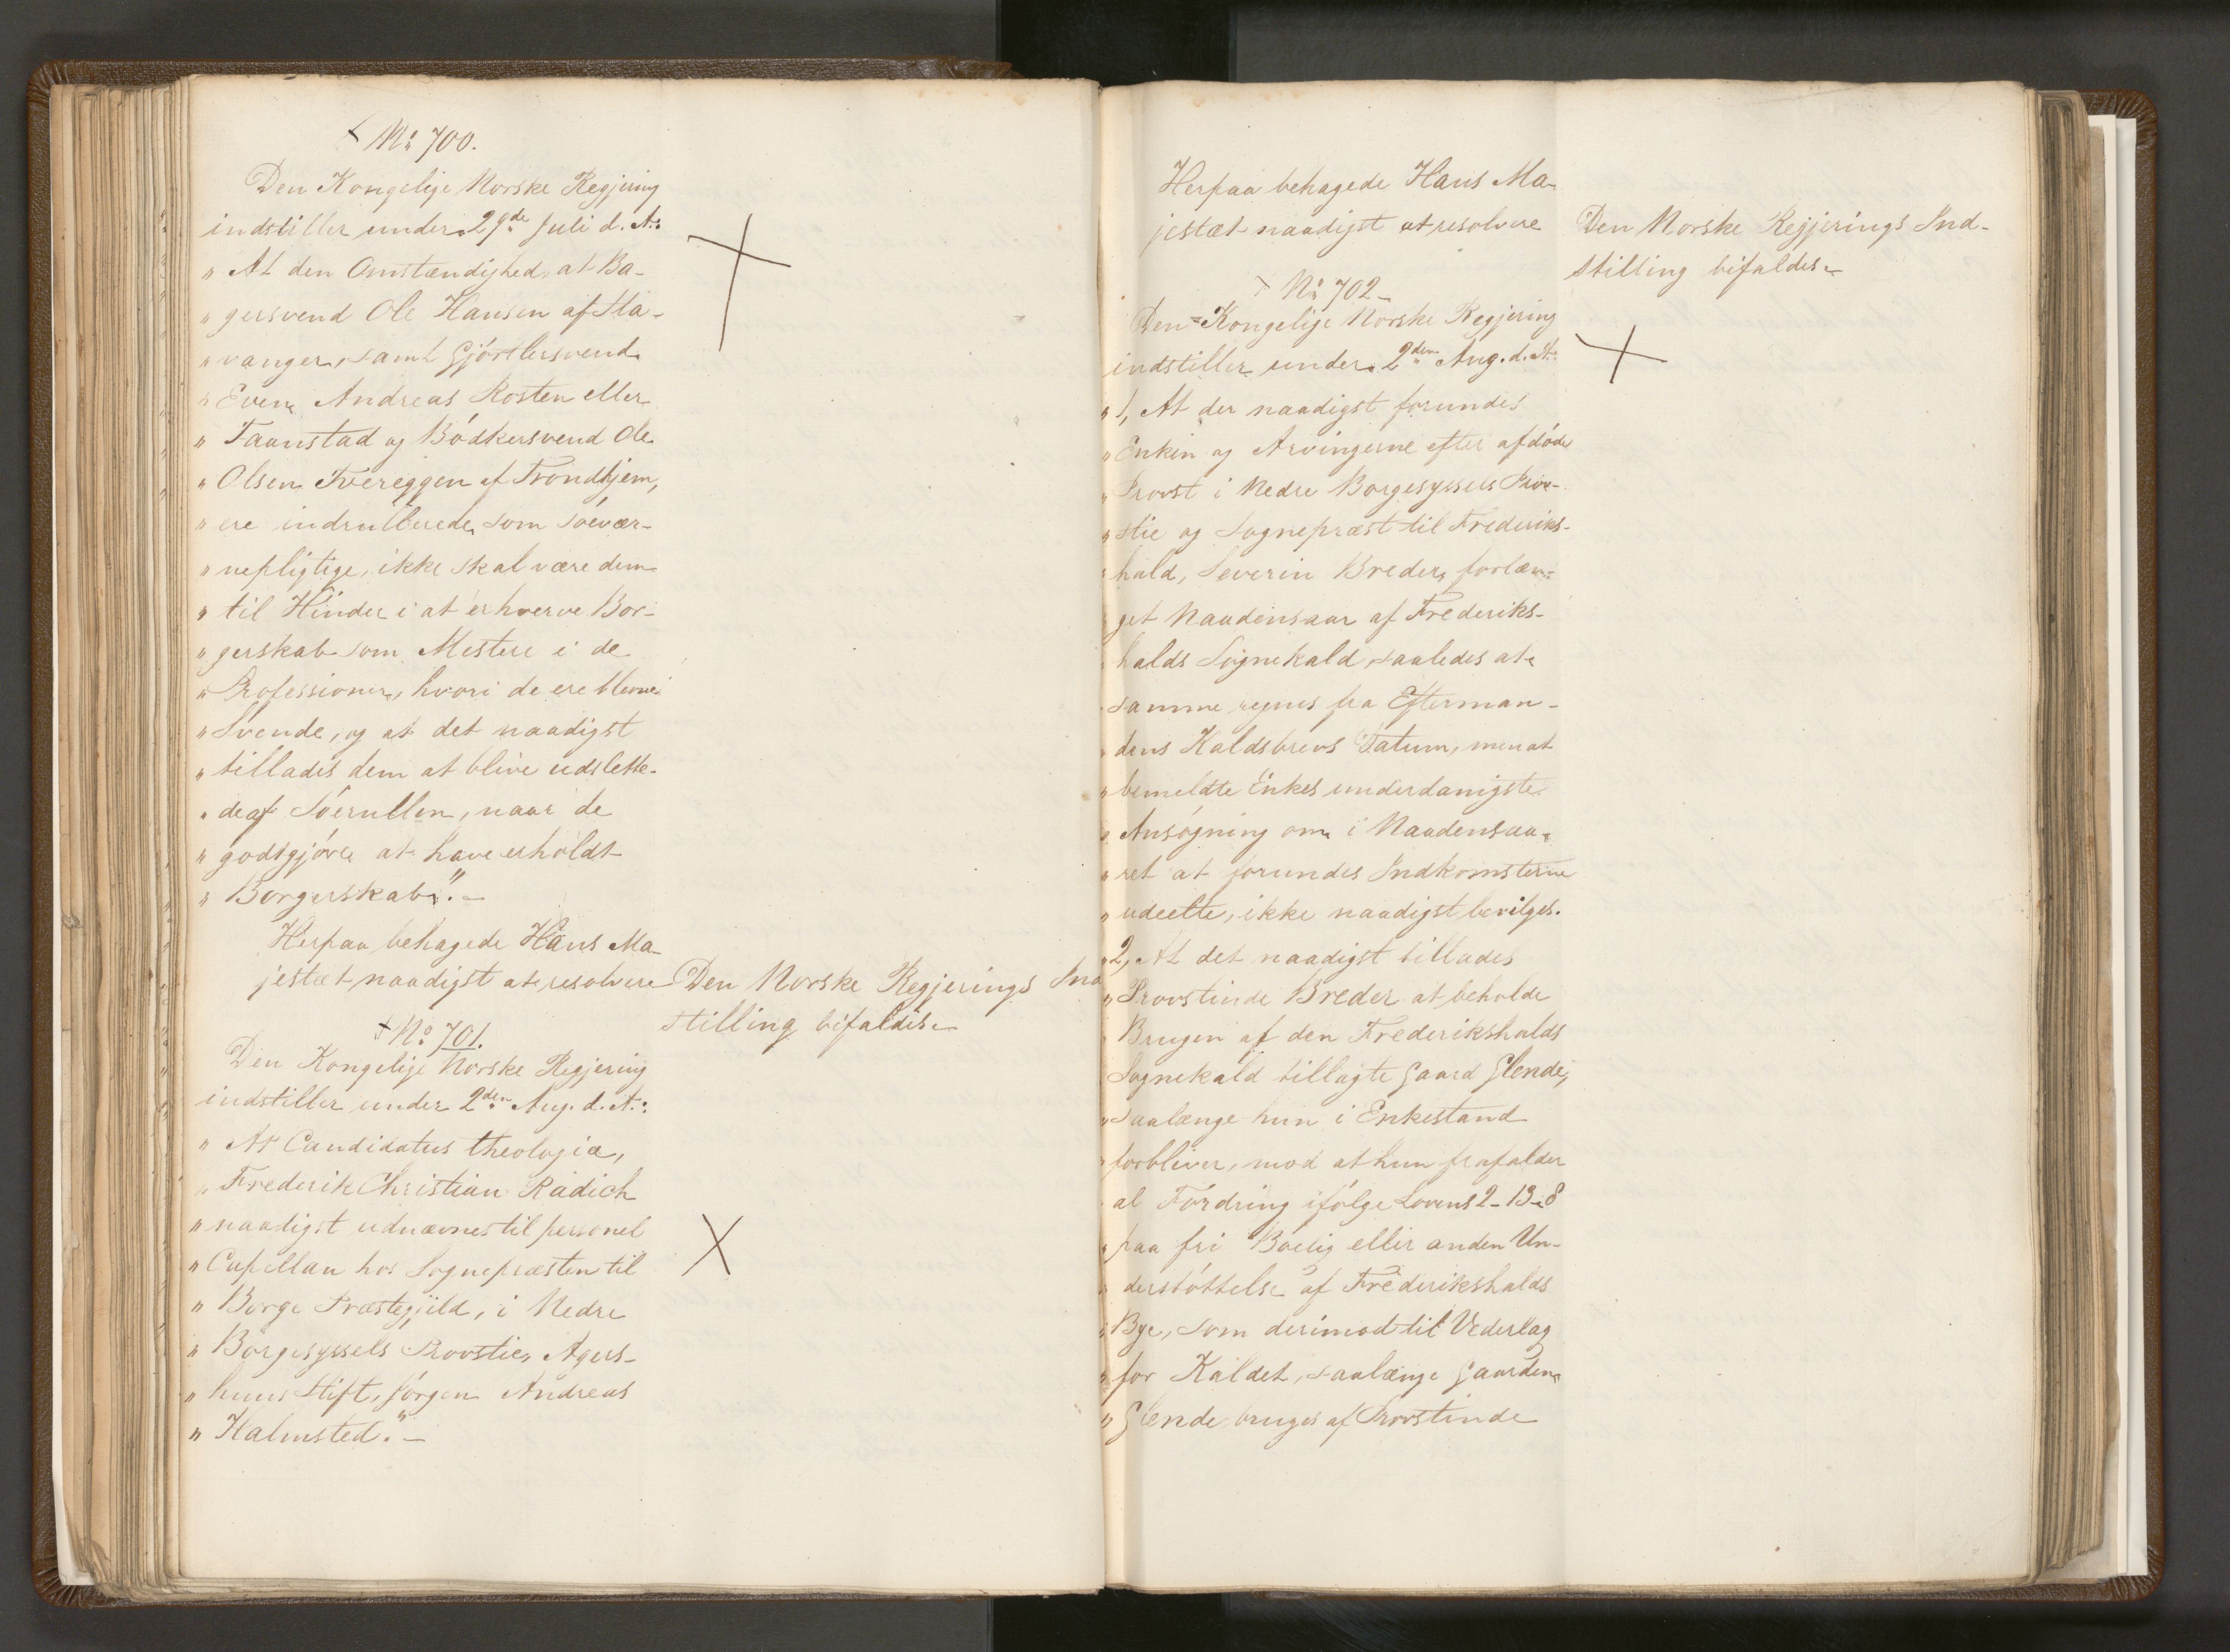 № 700.
Den Kongelige Norske Regjering
indstiller under 29de Juli d. A.:
" At den Omstændighed, at Ba-
" gersvend Ole Hansen af Sta-
" vanger, samt Gjørtlersvend
" Even Andreas Rosten eller
" Taanstad og Bödkersvend Ole
" Olsen Tvereggen af Trondhjem,
" ere indrullerede som söevær-
" nepligtige, ikke skal være dem
" til Hinder i at erhverve Bor-
" gerskab som Mestere i de
" Professioner, hvori de ere blevne
" Svende, og at det naadigst
" tillades dem at blive udslette-
" de af Söerullen, naar de
" godtgjöre at have erholdt
" Borgerskab". -
Herpaa behagede Hans Ma-
jestæt naadigst at resolvere
Den Norske Regjerings Ind
stilling bifaldes. -
№ 701.
Den Kongelige Norske Regjering
indstiller under 2den Aug. d. A.:
" At Candidatus theologiæ,
" Frederik Christian Radich
" naadigst udnævnes til personel
" Capellan hos Sognepræsten til
" Borge Præstegjeld, i Nedre
" Borgesyssels Provstie, Agers-
" huus Stift, Jörgen Andreas
" Halmsted." -
Herpaa behagede Hans Ma-
jestæt naadigst at resolvere
Den Norske Regjerings Ind-
stilling bifaldes. -
№ 702 -
Den Kongelige Norske Regjering
indstiller under 2den Aug. d. A:
" 1, At der naadigst forundes
" Enken og Arvingerne efter afdöde
" Provst i Nedre Borgesyssels Prov-
" stie og Sognepræst til Frederiks-
" hald, Severin Breder, forlæn-
" get Naadensaar af Frederiks-
" halds Sognekald, saaledes at
" samme regnes fra Efterman-
" dens Kaldsbrevs Datum, men at
" bemeldte Enkes underdanigste
" Ansögning om i Naadensaa-
" ret at forundes Indkomsterne
" udeelte, ikke naadigst bevilges.
" 2, At det naadigst tillades
" Provstinde Breder at beholde
" Brugen af den Frederikshalds
" Sognekald tillagte Gaard Glende,
" saalænge hun i Enkestand
" forbliver, mod at hun frafalder
" al Fordring ifölge Lovens 2-13-8
" paa fri Bolig eller anden Un-
" derstöttelse af Frederikshalds
" Bye, som derimod til Vederlag
" for Kaldet, saalænge Gaarden
" Glende bruges af Provstinde